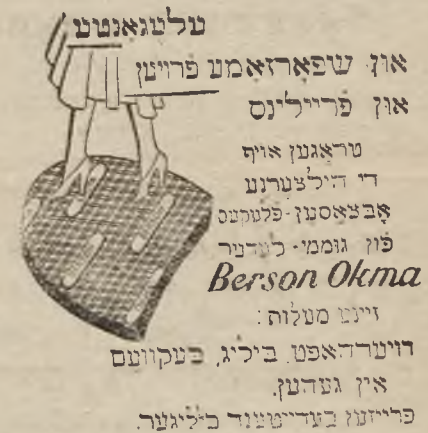 עלעגאַנטע
און שפּאָרזאַמע פרויען
און פריילינס
טראָגען אויף
די הילצערנע
אָבצאַסען-פלעקעס
פון גוממי-לעדער
Berson Okma
זיינע מעלות:
דויערהאַפט, ביליג, בעקוועם
אין געהען.
פרייזען בעדייטענד ביליגער.